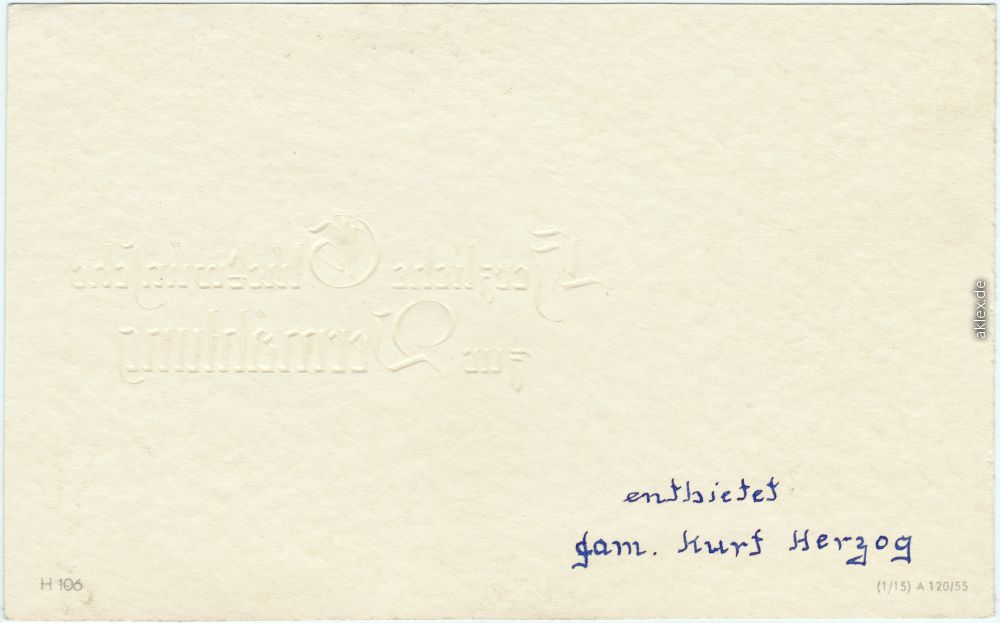 Herzliche Glückwünsche
zur Vermählung
entbietet
Fam. Kurt Herzog
H 106
(1/15) A 120/55
aklex.de